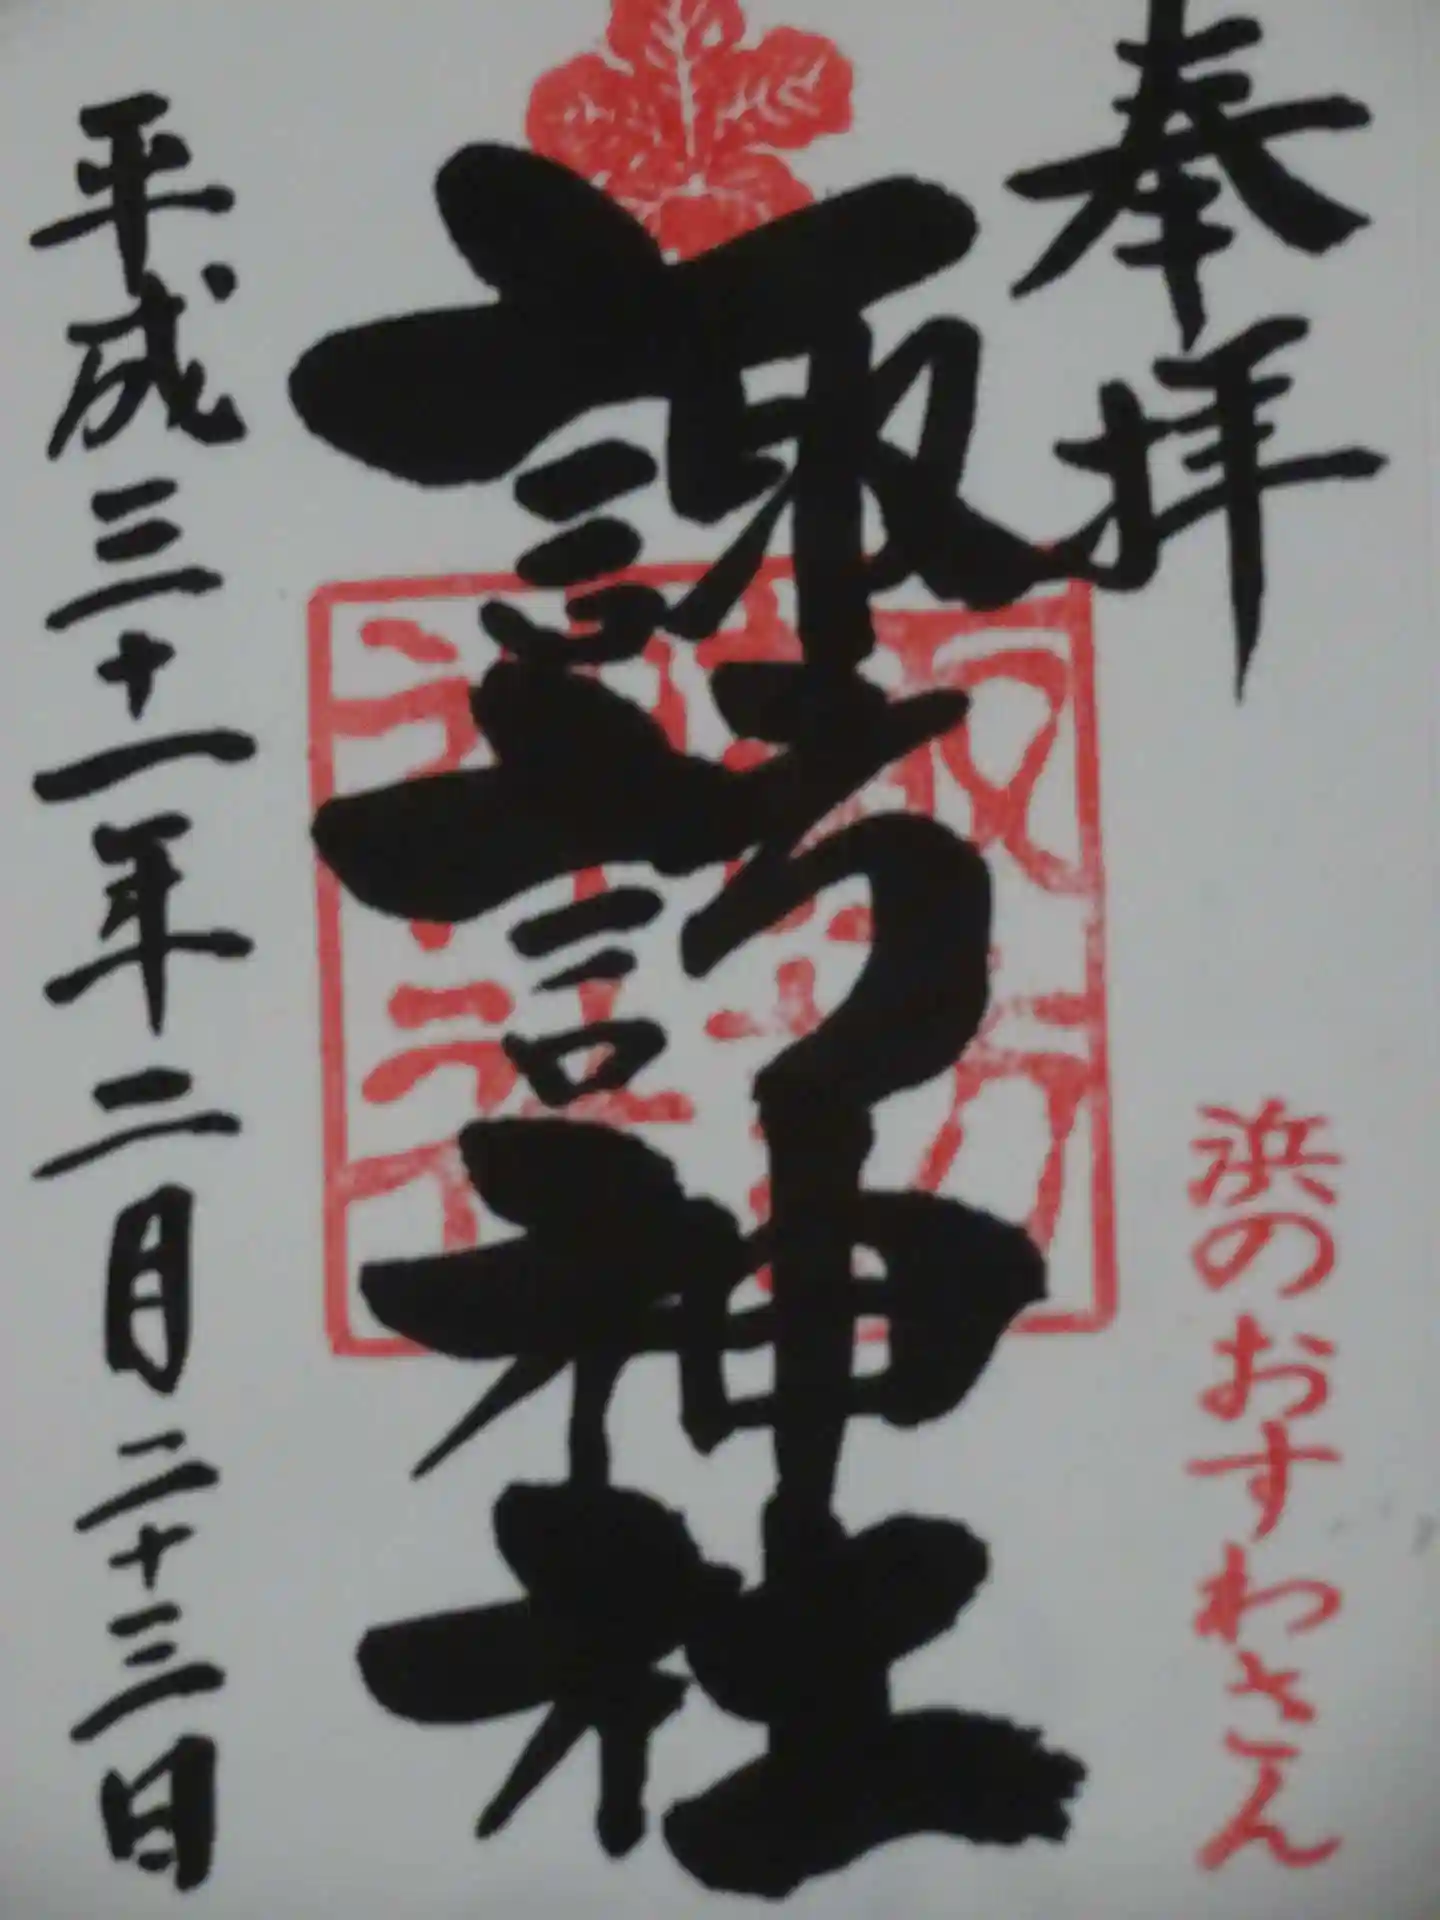 奉拝
浜のおすわさん
諏訪神社
平成三十一年二月二十三日